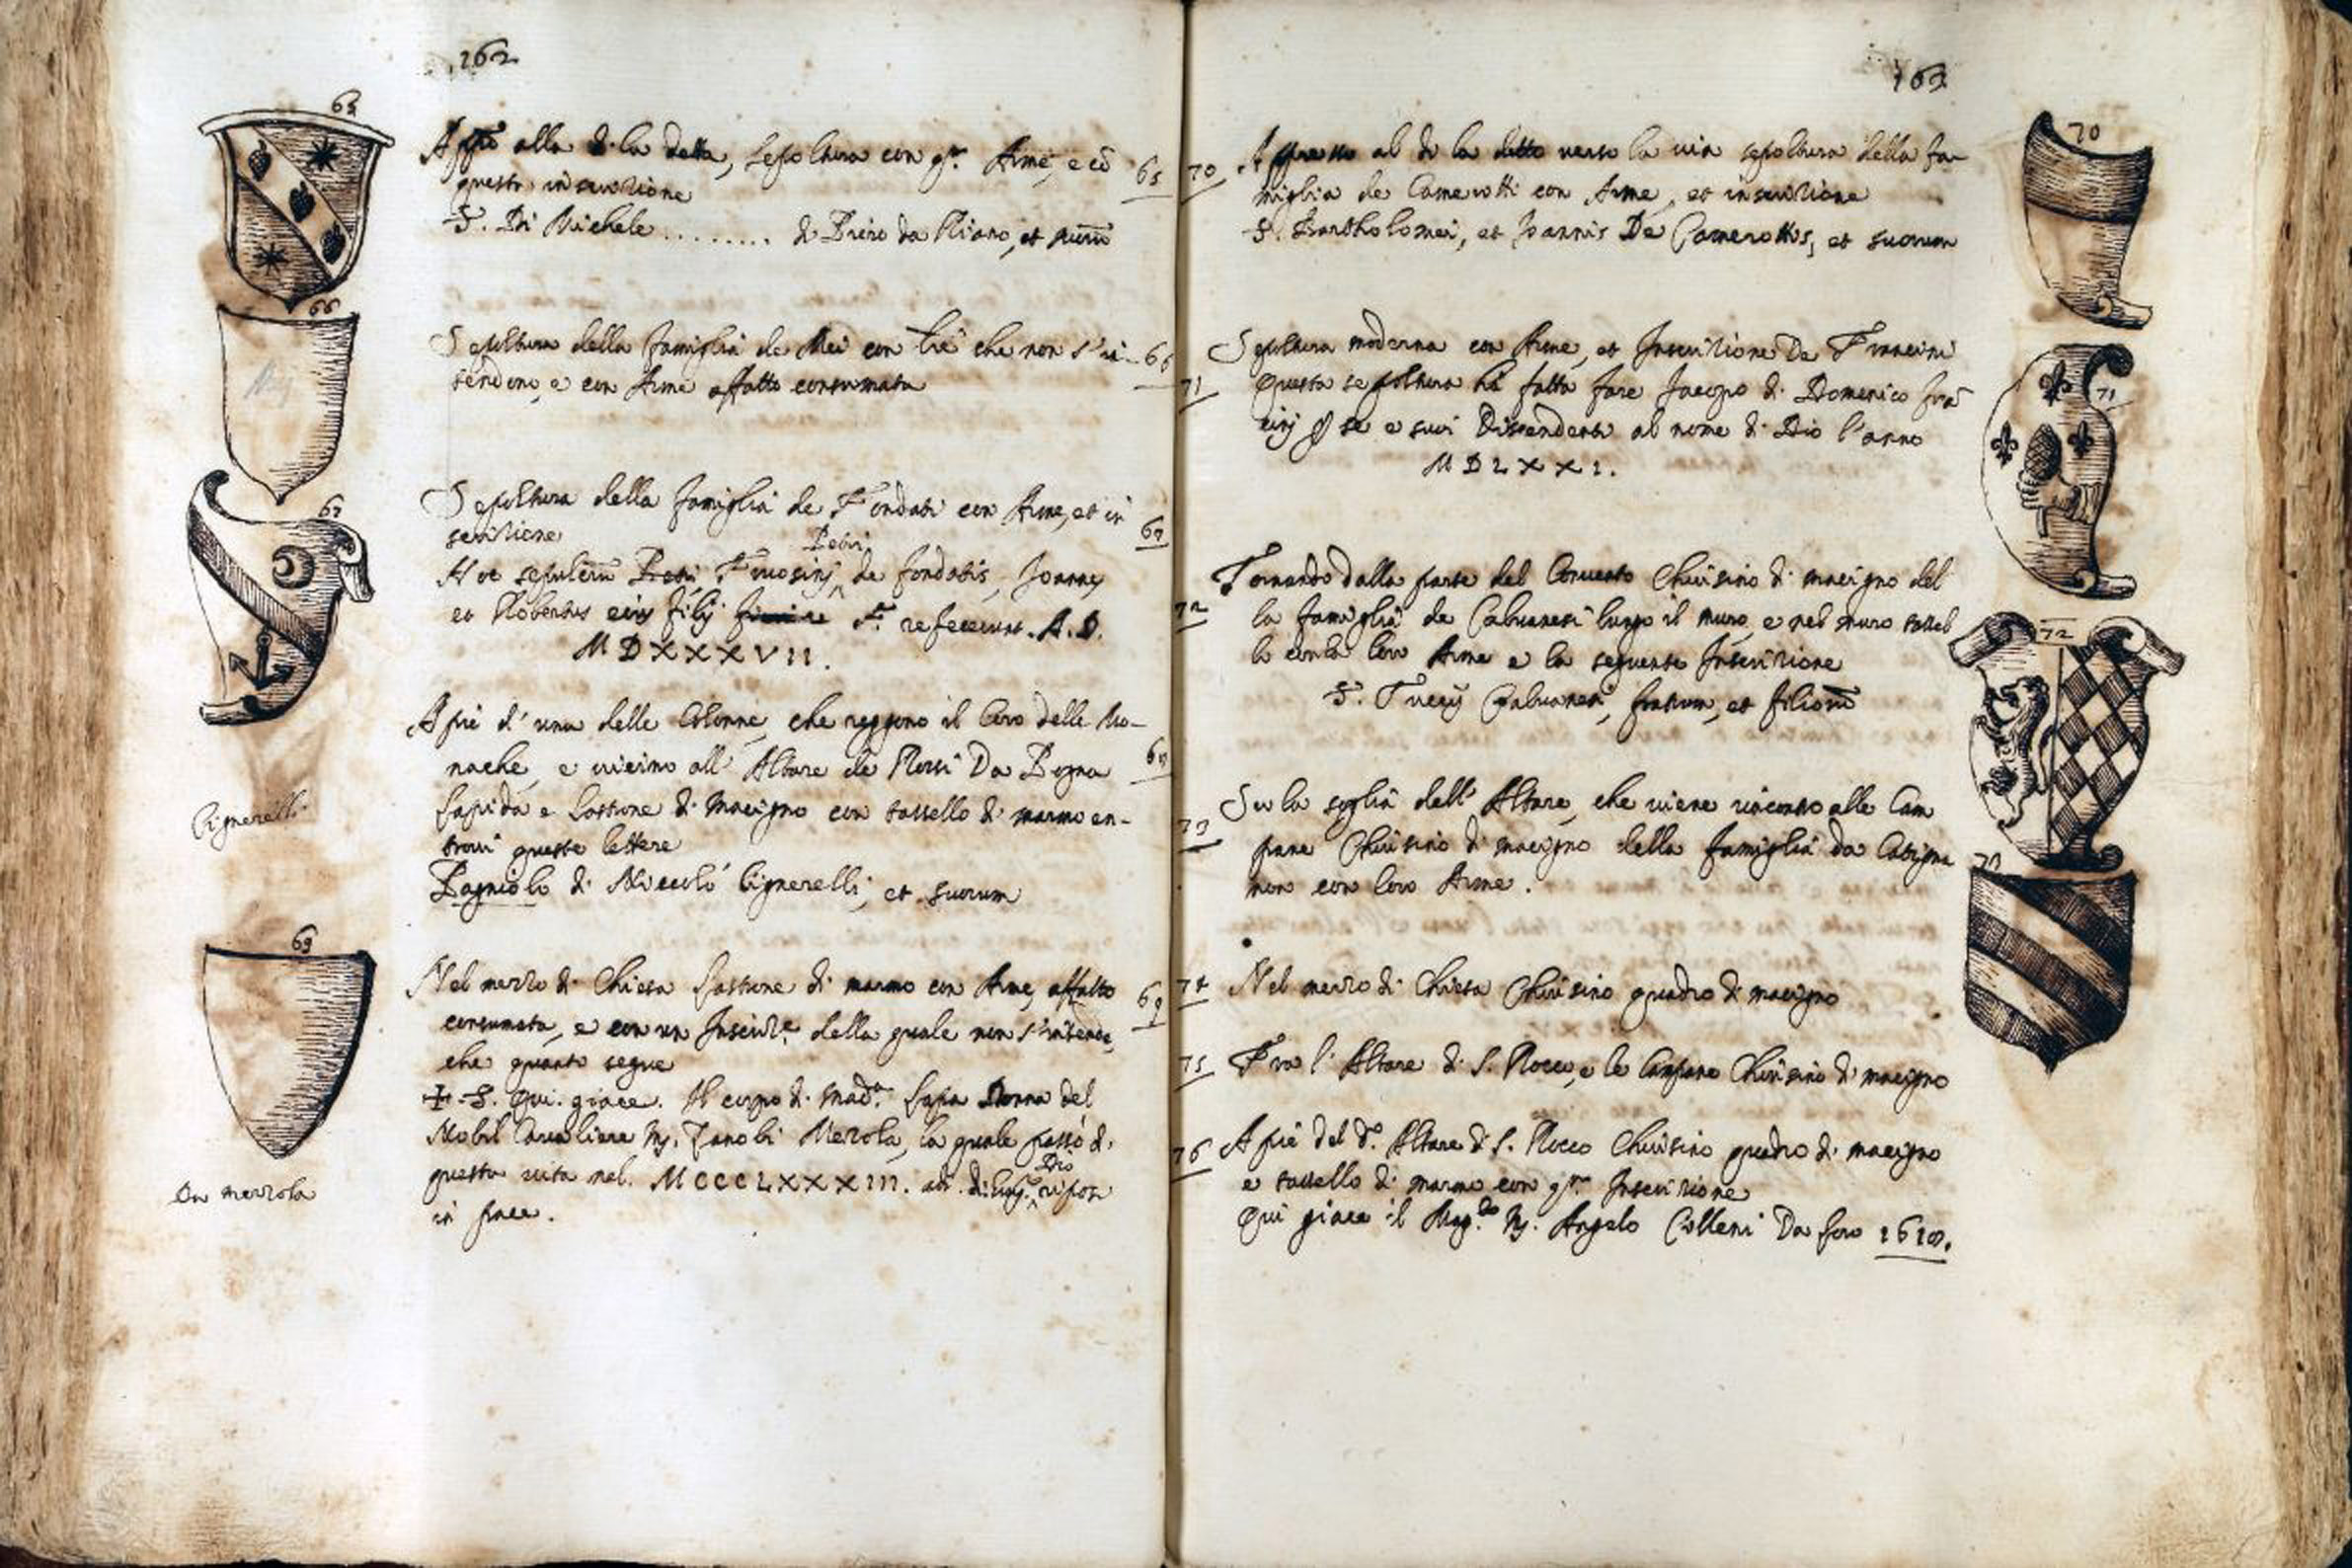 162
65
Appo alla di la detta, sepoltura con qta Arme, e cō
questa inscrizione
65
S. Di Michele ........ di Piero da Riano, et suorū
66
Sepoltura della famiglia de Mei con tre che non s'in-
66
tendono, e con Arme affatto consumata
67
Sepoltura della famiglia de Fondati con Arme, et in
scrizione
67
Petri
Hoc sepulcrū Fruosinj de fondatis, Joannes
et Robertus eius filij F. refecerunt. A. D.
MDXXXVII.
A piè d'una delle Colonne, che reggono il Coro delle Mo-
nache, e vicino all' Altare de Rossi Da Pogna
68
Lapida e Lastrone di Macigno con tassello di marmo en-
Cignerelli
trovi queste lettere
Pagniolo di Niccolò Cignerelli, et suorum
69
Nel mezzo di Chiesa Lastrone di marmo con Arme affatto
69
consumata, e con un Inscrize della quale non s'intende,
che quanto segue
+ S. Qui. giace. Il corpo di Mada Lapa Donna del
Nobil Cavaliere Mj. Zanobi Mezzola, la quale passò di
Dio
questa vita nel. MCCCLXXXIII. adi. riposi
Da mezzola
in pace.
163
70
70
Appresso al di la detto verso la via sepoltura della fa-
miglia de Camerotti con Arme, et inscrizione
S. Bartholomei, et Joannis De Camerottis, et suorum
71
Sepoltura moderna con Arme, et Inscrizione De Francini
71
Questa sepoltura hà fatta fare Jacopo di Domenico frā
cinj p se e suoi Discendenti al nome di Dio l'anno
MDLXXI.
Tornando dalla parte del Convento Chiusino di macigno del
72
72
la famiglia de Calvanesi lungo il muro, e nel muro tassel
lo con la loro Arme e la seguente Inscrizione
S. Calvanesi, fratrum, et filiorū
73
Su la soglia dell' Altare, che viene rincontro alle Cam
pane Chiusino di macigno della famiglia da Catigna
73
non con loro Arme.
74
Nel mezzo di Chiesa Chiusino quadro di macigno
75
Fra l'Altare di S. Rocco, e le Campane Chiusino di macigno
76
A piè del do. Altare di S. Rocco Chiusino quadro di macigno
e tassello di marmo con qta Inscrizione
Qui giace il Magco Mj. Angelo Colleni Da foro